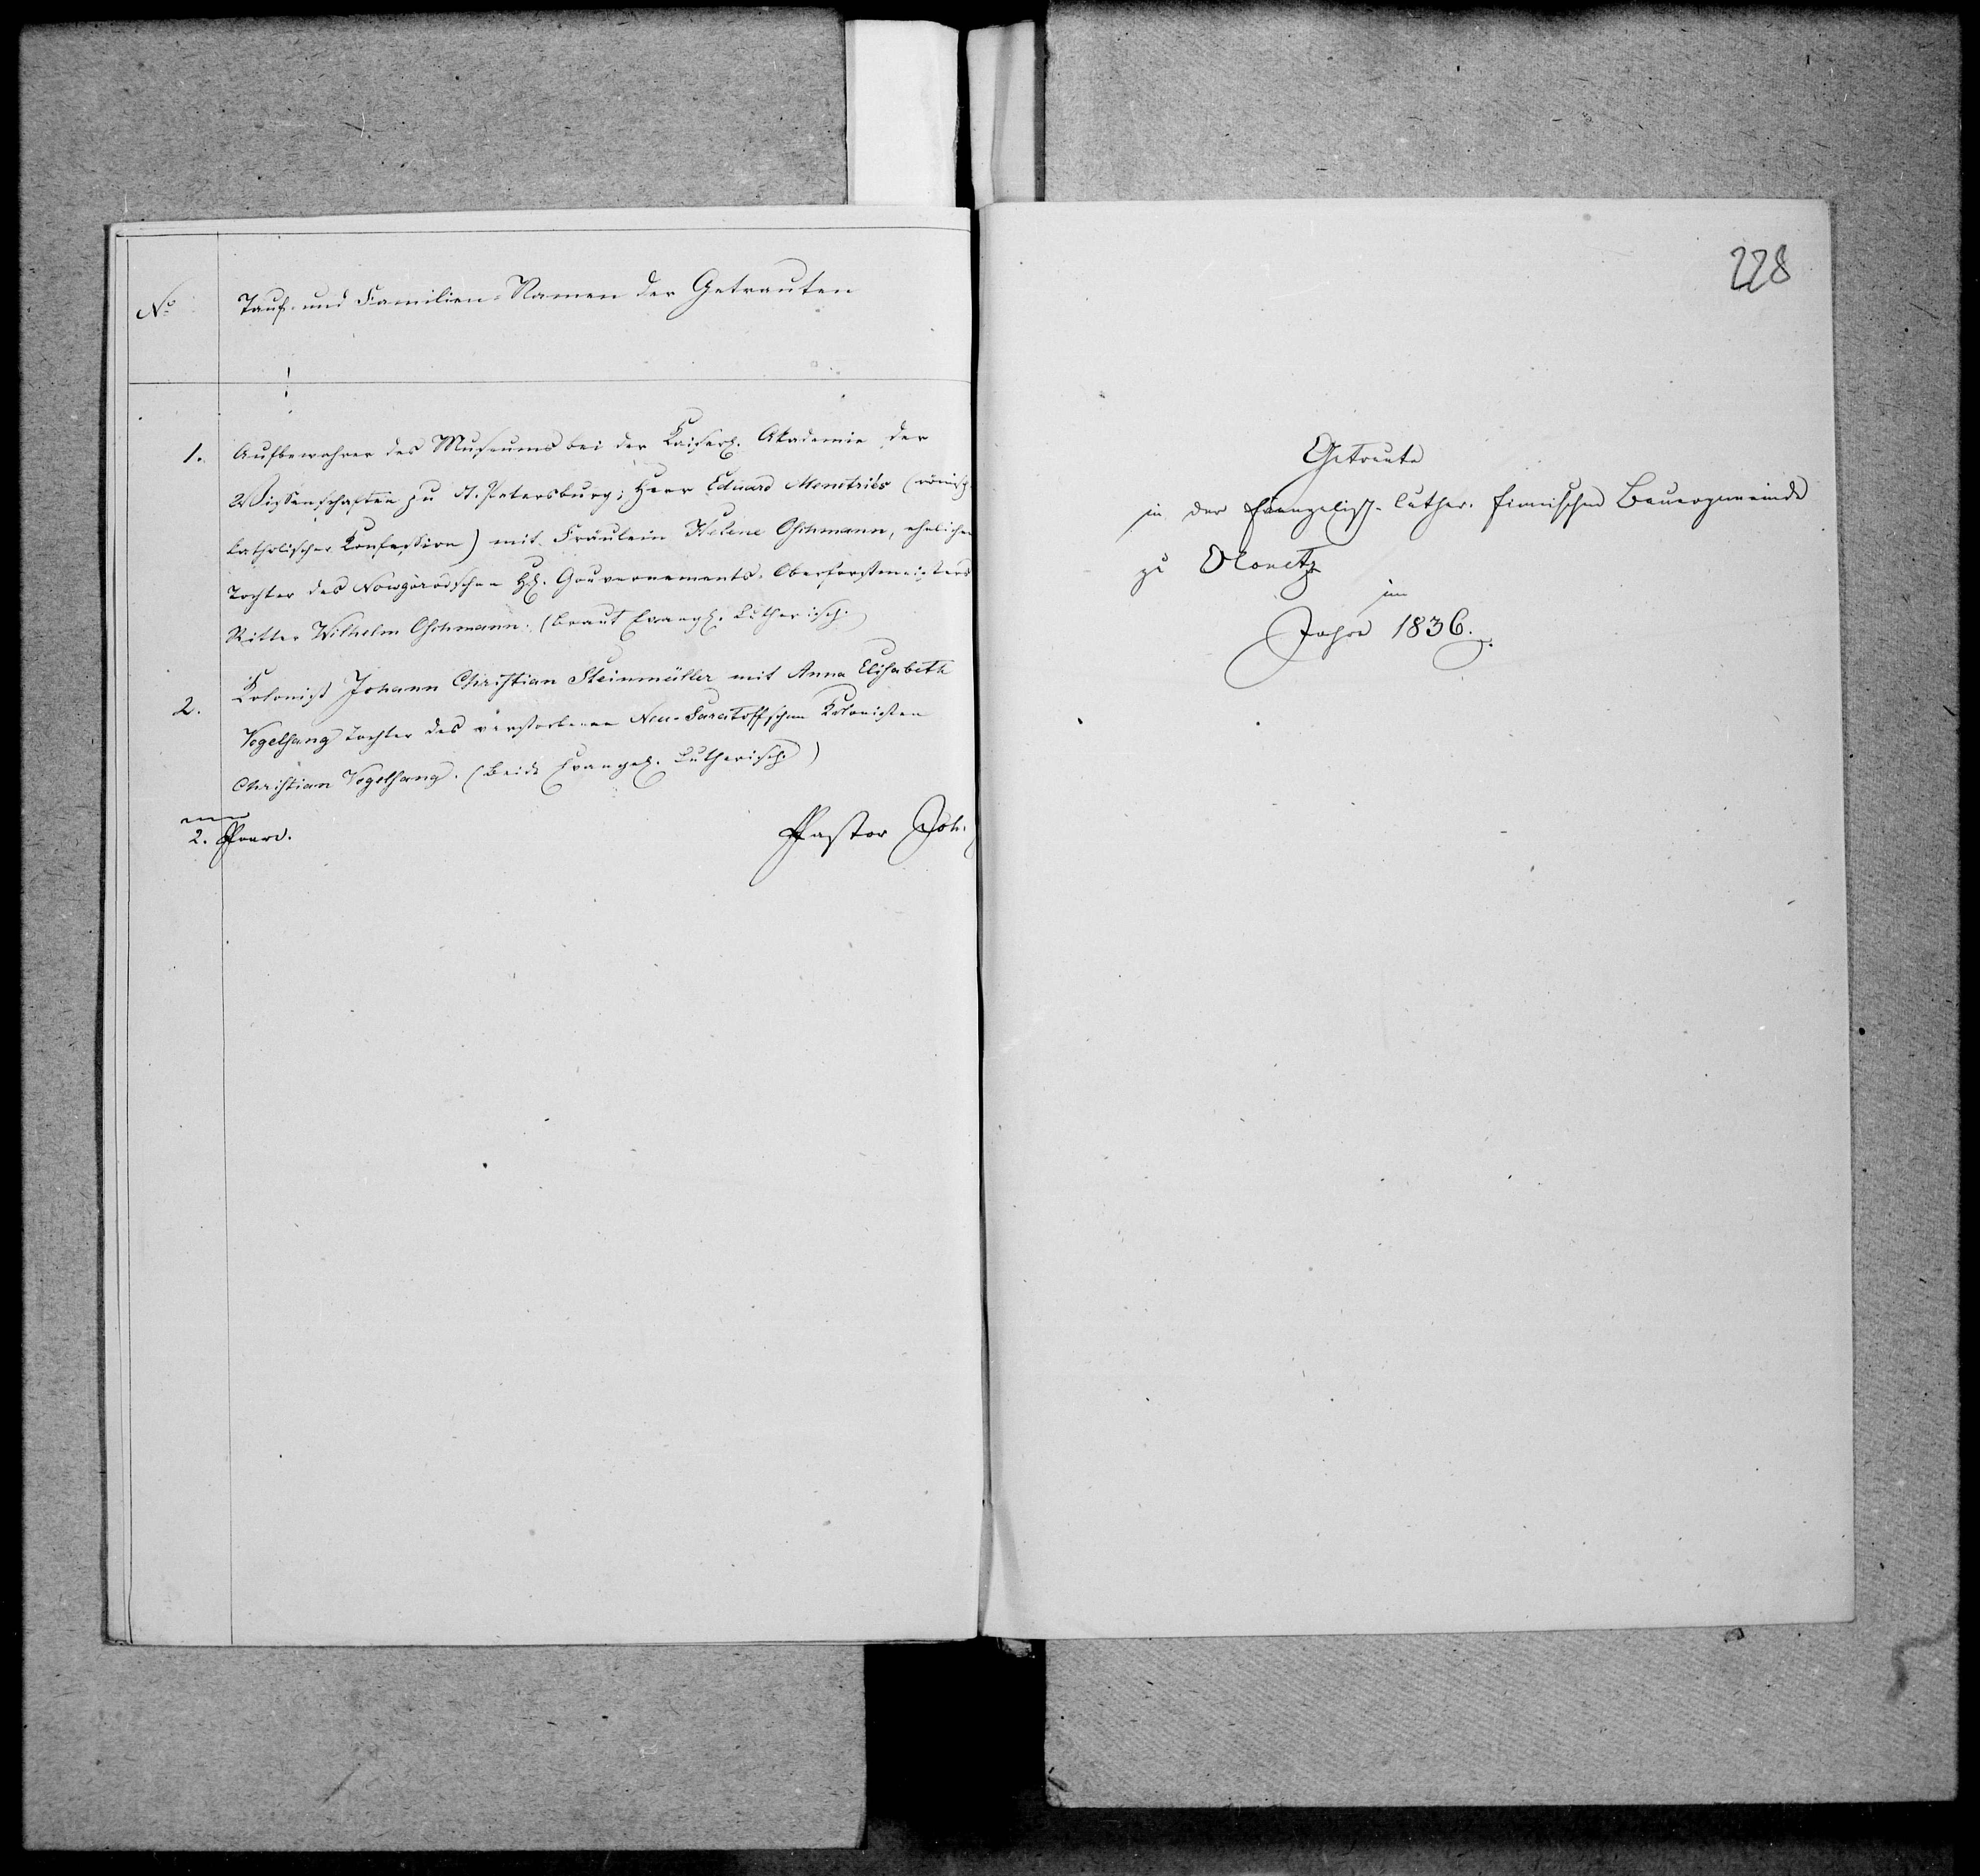 No
Tauf- und Familien-Namen der Getrauten
1. Aufbewahrer des Museums bei der Kaiserl. Akademie der
Wissenschaften zu St. Petersburg; Herr Eduard Menetriés (römisch
katholischer Konfession) mit Fräulein Helene Ohtmann, ehelichen
Tochter des Nowgorodschen Gouvernements-Oberforstmeisters
Ritter Wilhelm Ohtmann. (Braut Evangl. Lutherisch.)
2. Kolonist Johann Christian Steinmüller mit Anna Elisabeth
Vogelsang Tochter des verstorbenen Neu-Saratoffschen Kolonisten
Christian Vogelsang. (Beide Evangel. Lutherisch.)
2. Paare. Pastor Joh.
228
Getraute
in der Evangelisch-luther. finnischen Bauergemeinde
zu Olonetz
im
Jahre 1836.